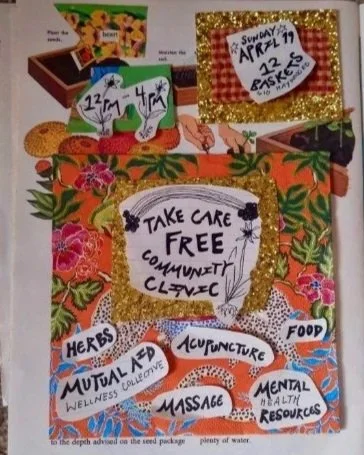 Plant the
seeds.
heart
Moisten the
soil.
SUNDAY
APRIL 19
12
BASKETS
610 HAYWOOD RD
12PM - 4PM
TAKE CARE
FREE
COMMUNITY
CLINIC
HERBS
ACUPUNCTURE
FOOD
MUTUAL AID
WELLNESS COLLECTIVE
MASSAGE
MENTAL
HEALTH
RESOURCES
to the depth advised on the seed package
plenty of water.